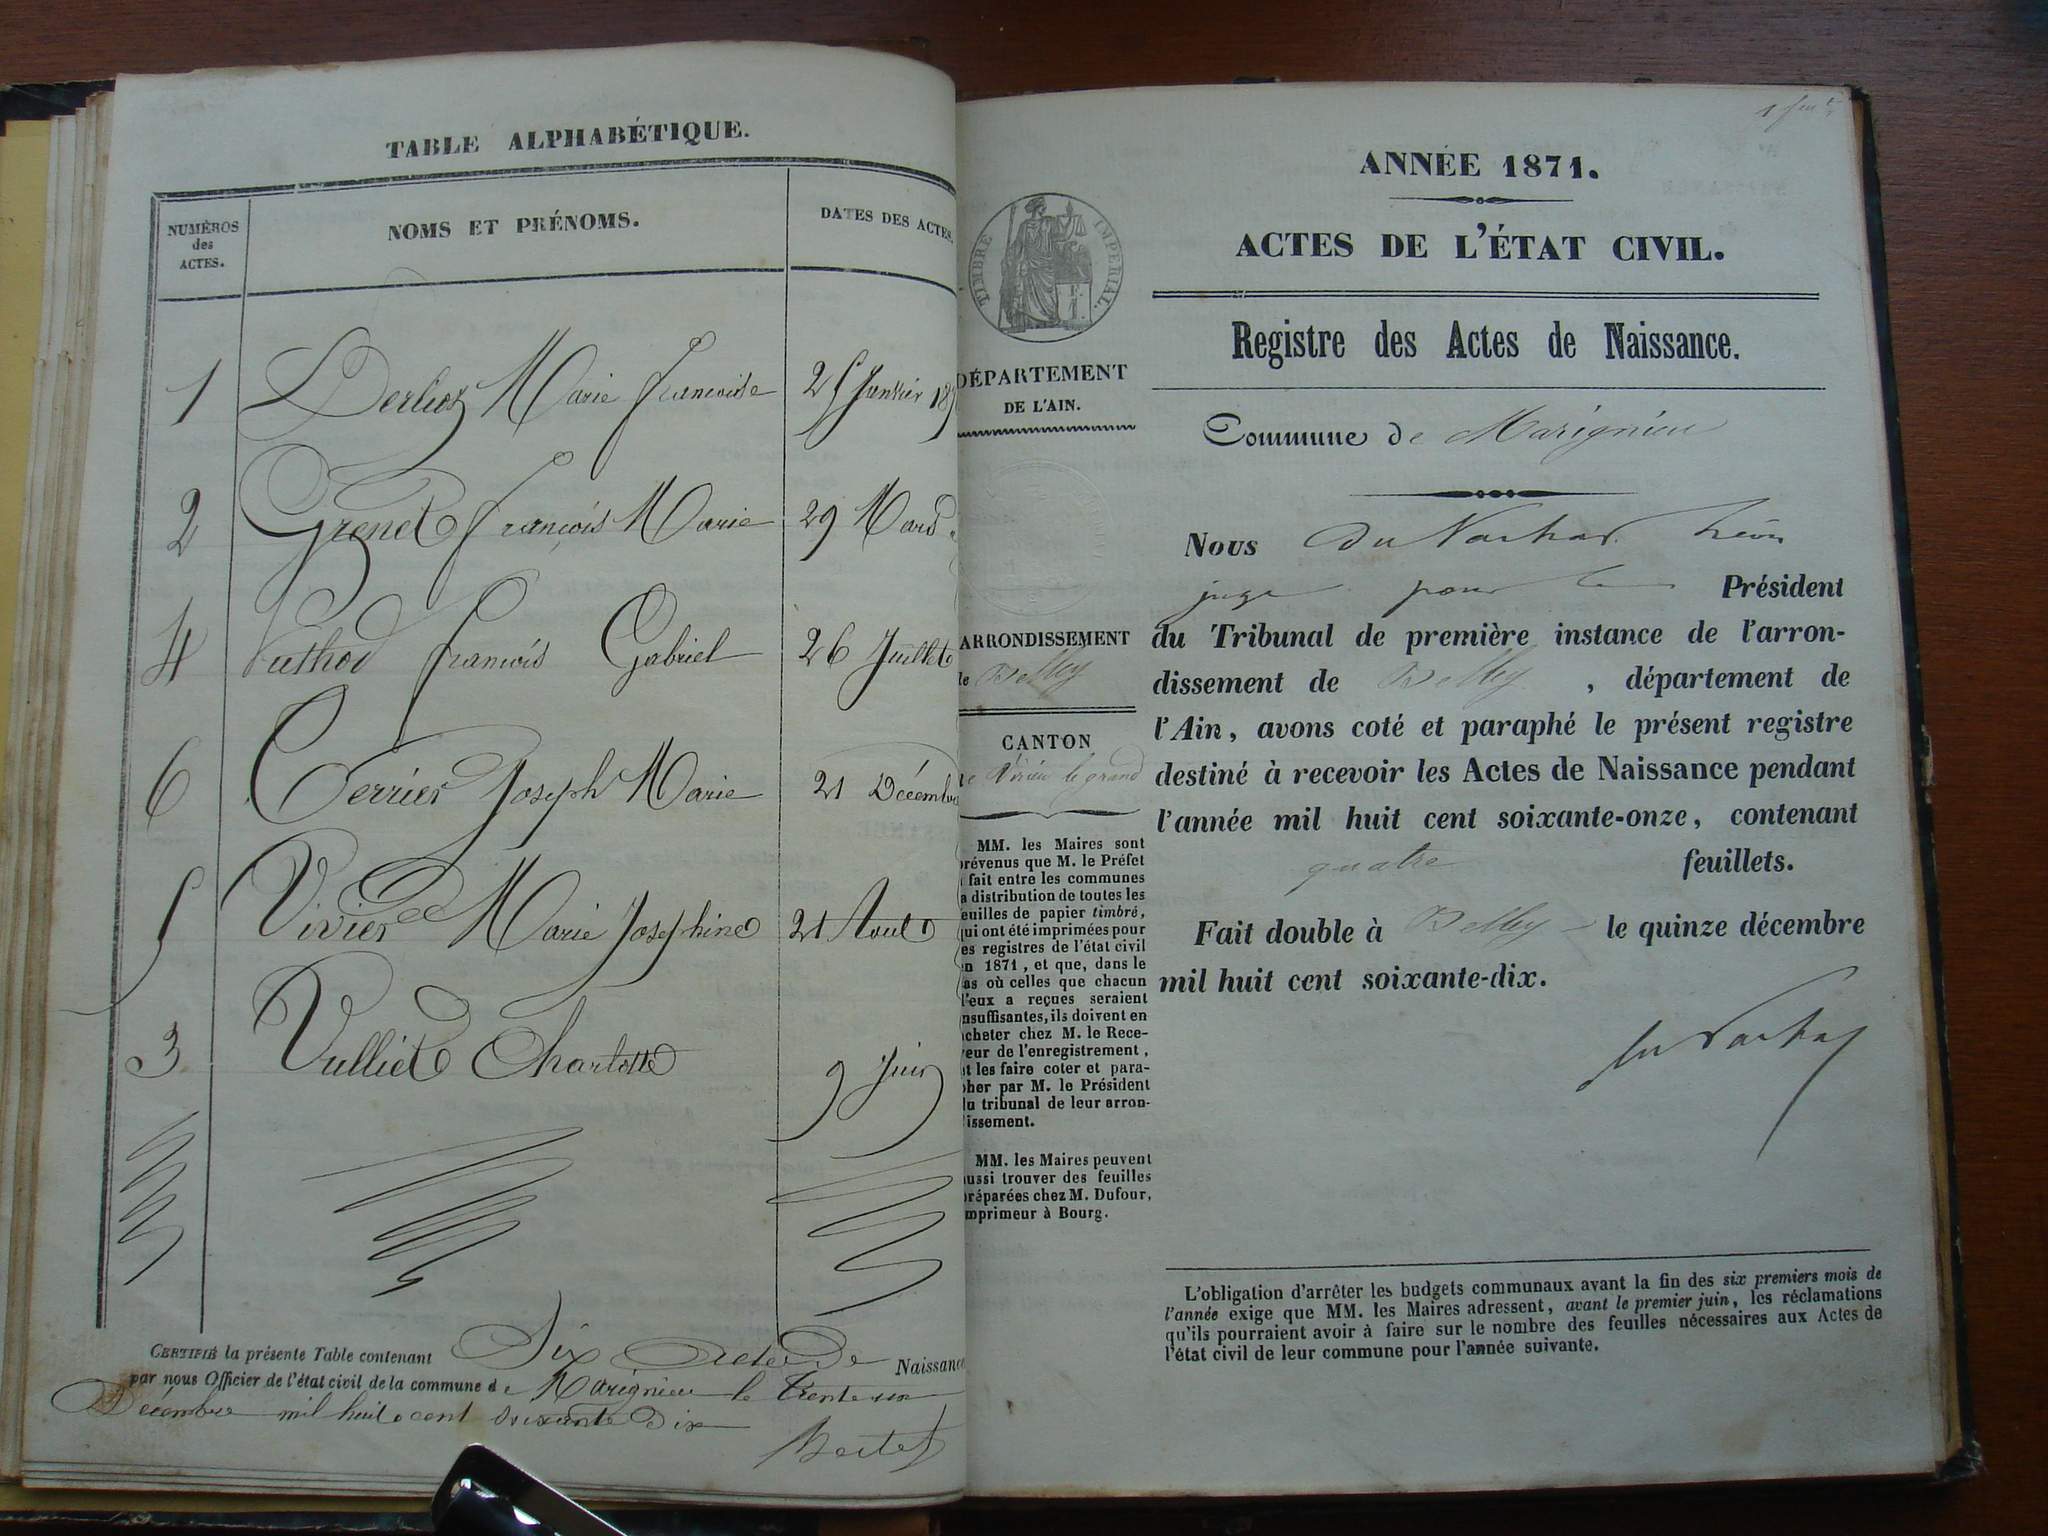 TABLE ALPHABÉTIQUE.
NUMÉROS
des
ACTES.
NOMS ET PRÉNOMS.
DATES DES ACTES.
1 Berlioz Marie Françoise 25 Janvier 187
2 Grenet François Marie 29 Mars
4 Juthod François Gabriel 26 Juillet
6 Perrier Joseph Marie 21 Décembre
5 Vivier Marie Joséphine 21 Aout
3 Vulliet Charlotte 9 Juin
CERTIFIÉ la présente Table contenant Six Actes de Naissance
par nous Officier de l'état civil de la commune de Marignieu le trente un
Décembre mil huit cent soixante dix
ANNÉE 1871.
ACTES DE L'ÉTAT CIVIL.
Registre des Actes de Naissance.
Commune de Marignieu
Nous du Nachat Léon
juge pour le Président
du Tribunal de première instance de l'arron-
dissement de Belley, département de
l'Ain, avons coté et paraphé le présent registre
destiné à recevoir les Actes de Naissance pendant
l'année mil huit cent soixante-onze, contenant
quatre feuillets.
Fait double à Belley le quinze décembre
mil huit cent soixante-dix.
TIMBRE IMPÉRIAL.
DÉPARTEMENT
DE L'AIN.
ARRONDISSEMENT
de Belley
CANTON
de Virieu le grand
MM. les Maires sont
prévenus que M. le Préfet
a fait entre les communes
la distribution de toutes les
feuilles de papier timbré,
qui ont été imprimées pour
les registres de l'état civil
en 1871, et que, dans le
cas où celles que chacun
d'eux a reçues seraient
insuffisantes, ils doivent en
acheter chez M. le Rece-
veur de l'enregistrement,
et les faire coter et para-
pher par M. le Président
du tribunal de leur arron-
dissement.
MM. les Maires peuvent
aussi trouver des feuilles
préparées chez M. Dufour,
imprimeur à Bourg.
L'obligation d'arrêter les budgets communaux avant la fin des six premiers mois de
l'année exige que MM. les Maires adressent, avant le premier juin, les réclamations
qu'ils pourraient avoir à faire sur le nombre des feuilles nécessaires aux Actes de
l'état civil de leur commune pour l'année suivante.